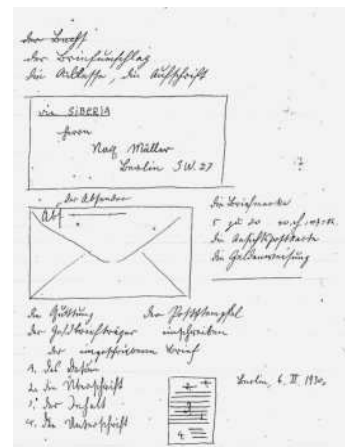 der Brief
der Briefumschlag
die Adresse, die Aufschrift
via SIBERIA
Herrn
Max Müller
Berlin S.W. 27
der Absender
Abs.
die Briefmarke
die Ansichtspostkarte
die Geldanweisung
die Quittung der Poststempel
der Geldbriefträger einschreiben
der eingeschriebene Brief
1. das Datum
2. die Überschrift
3. der Inhalt
4. die Unterschrift
Berlin, 6. III. 1930.